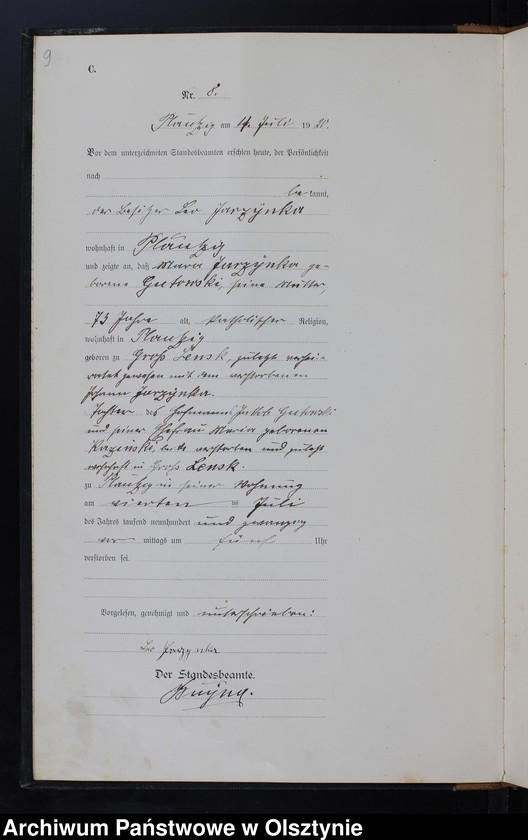 9
C.
Nr. 8.
Plautzig am 4. Juli 1920.
Vor dem unterzeichneten Standesbeamten erschien heute, der Persönlichkeit
nach
be kannt,
der Besitzer Leo Jarzynka
wohnhaft in Plautzig
und zeigte an, daß Maria Jarzynka ge-
borene Gutowski, seine Mutter,
73 Jahre alt, katholischer Religion,
wohnhaft in Plautzig
geboren zu Groß Lensk, zuletzt verhei-
ratet gewesen mit dem verstorbenen
Johann Jarzynka.
Tochter des Jakob Gutowski
und seiner Ehefrau Maria geborenen
beide verstorben und zuletzt
wohnhaft in Groß Lensk.
zu Plautzig in seiner Wohnung
am vierten Juli
des Jahres tausend neunhundert und zwanzig
vor mittags um fünf Uhr
verstorben sei.
Vorgelesen, genehmigt und unterschrieben:
Leo Jarzynka
Der Standesbeamte.
Archiwum Państwowe w Olsztynie